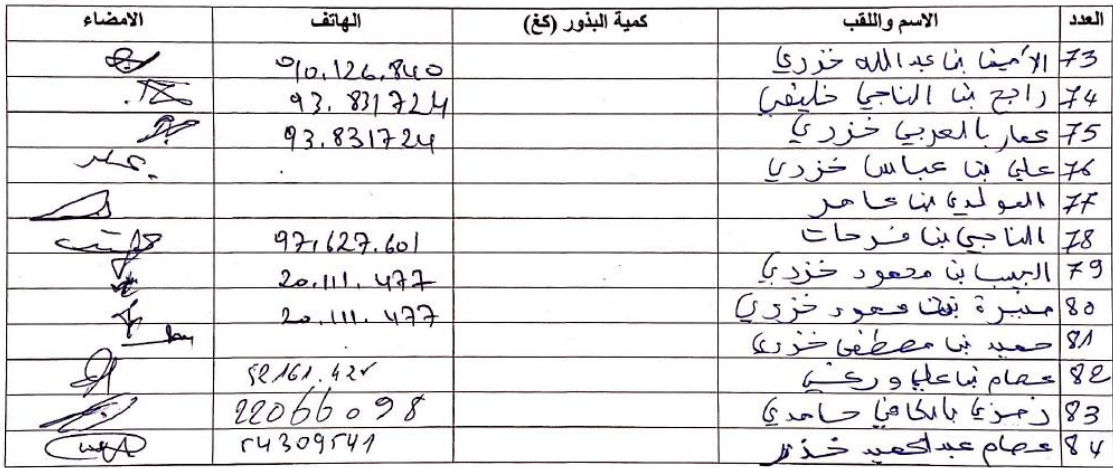 العدد الاسم واللقب كمية البذور (كغ) الهاتف الامضاء
73 الأمين بن عبد الله خزري 90.126.840
74 رابح بن الناجي خليفي 93.831724
75 عمار بالعربي خزري 93.831724
76 علي بن عباس خزري
77 المولدي بن عامر
78 الناجي بن فرحات 97.627.601
79 الحبيب بن محمود خزري 20.111.477
80 منيرة بنت محمود خزري 20.111.477
81 حميد بن مصطفى خزري
82 عصام بن علي 52.161.42
83 رمزي بالكافي حامدي 22066098
84 عصام عبد الحميد خزري 54309541